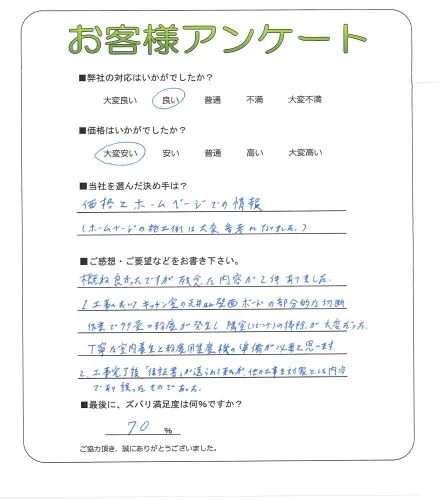 お客様アンケート
■弊社の対応はいかがでしたか？
大変良い 良い 普通 不満 大変不満
■価格はいかがでしたか？
大変安い 安い 普通 高い 大変高い
■当社を選んだ決め手は？
価格とホームページでの情報
(ホームページの施工例は大変参考になりました。)
■ご感想・ご要望などをお書き下さい。
概ね良かったですが残念な内容が2件ありました。
1.工事においてキッチン室の天井 壁面ボードの部分的な切断
作業で多量の粉塵が発生し 隣室(リビング)の掃除が大変だった。
丁寧な室内養生と粉塵用集塵機の準備が必要と思います
2.工事完了後「保証書」が送られてきたが、他の工事を対象とした内容
であり誤ったものであった。
■最後に、ズバリ満足度は何％ですか？
70 %
ご協力頂き、誠にありがとうございました。